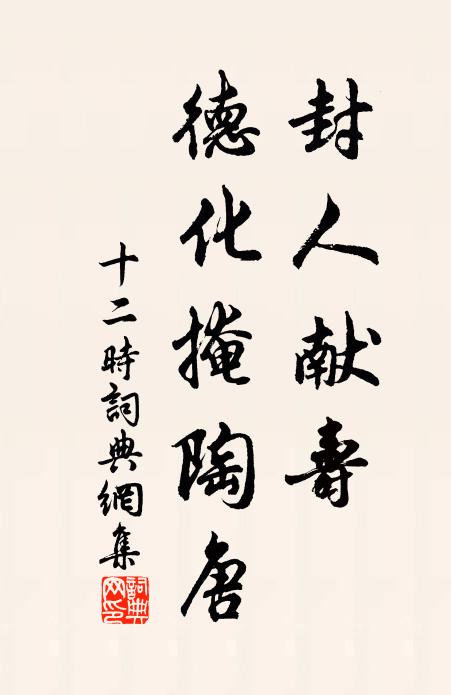 封人献壽
德化掩陶唐
十二時詞典網集
詞典网印